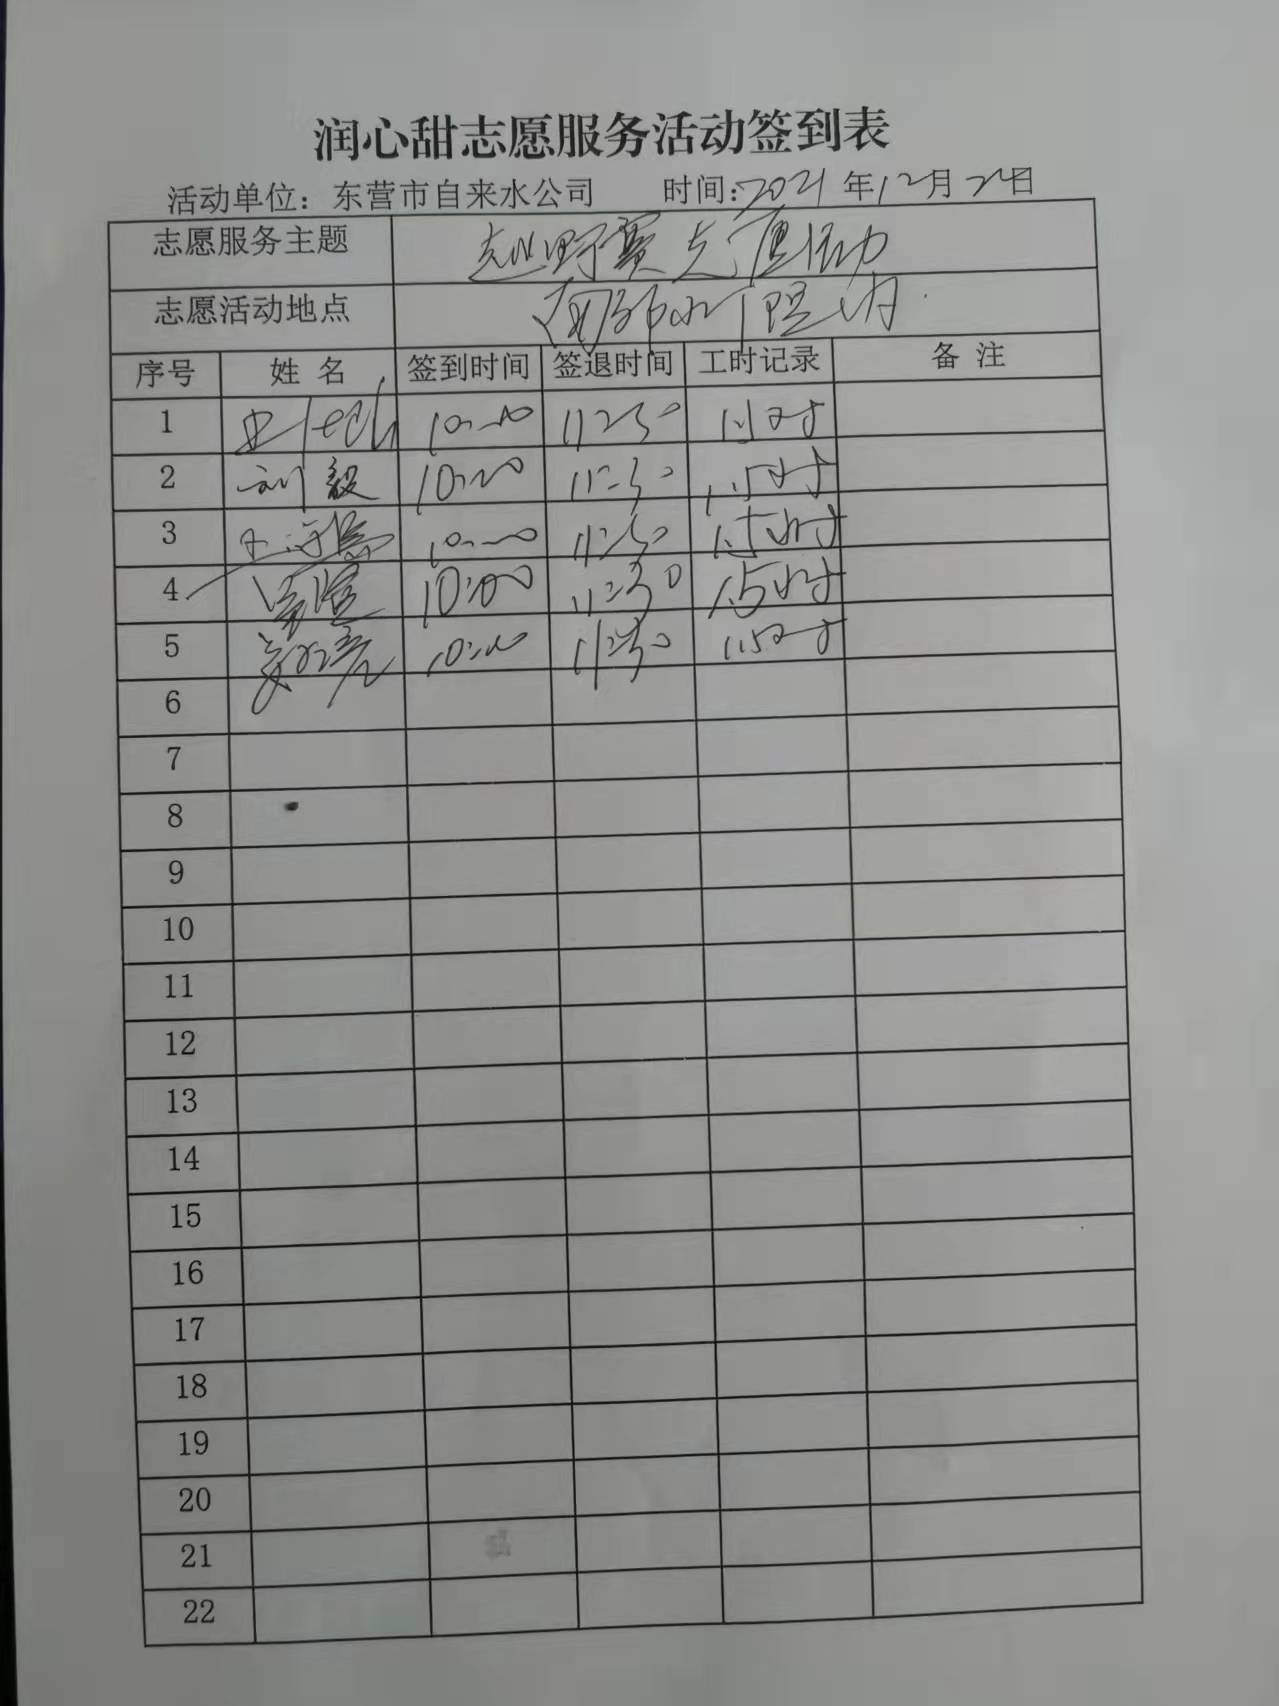 润心甜志愿服务活动签到表
活动单位：东营市自来水公司 时间:2021年12月24日
志愿服务主题 越野赛志愿活动
志愿活动地点 南郊水厂院内
序号 姓名 签到时间 签退时间 工时记录 备注
1 10:00 11:30 1.5时
2 刘毅 10:00 11:30 1.5时
3 10:00 11:30 1.5小时
4 10:00 11:30 1.5小时
5 10:00 11:30 1.5时
6
7
8
9
10
11
12
13
14
15
16
17
18
19
20
21
22